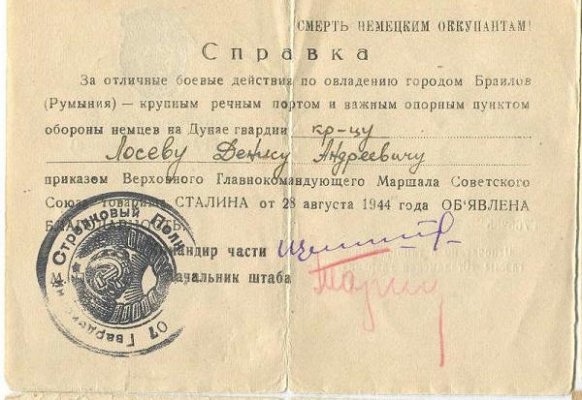 СМЕРТЬ НЕМЕЦКИМ ОККУПАНТАМ!
Справка
За отличные боевые действия по овладению городом Браилов
(Румыния) — крупным речным портом и важным опорным пунктом
обороны немцев на Дунае гвардии кр-цу
Лосеву Андреевичу
приказом Верховного Главнокомандующего Маршала Советского
Союза товарища СТАЛИНА от 28 августа 1944 года ОБ'ЯВЛЕНА
БЛАГОДАРНОСТЬ.
Командир части
М.
Начальник штаба
Стрелковый Полк
Гвардейский